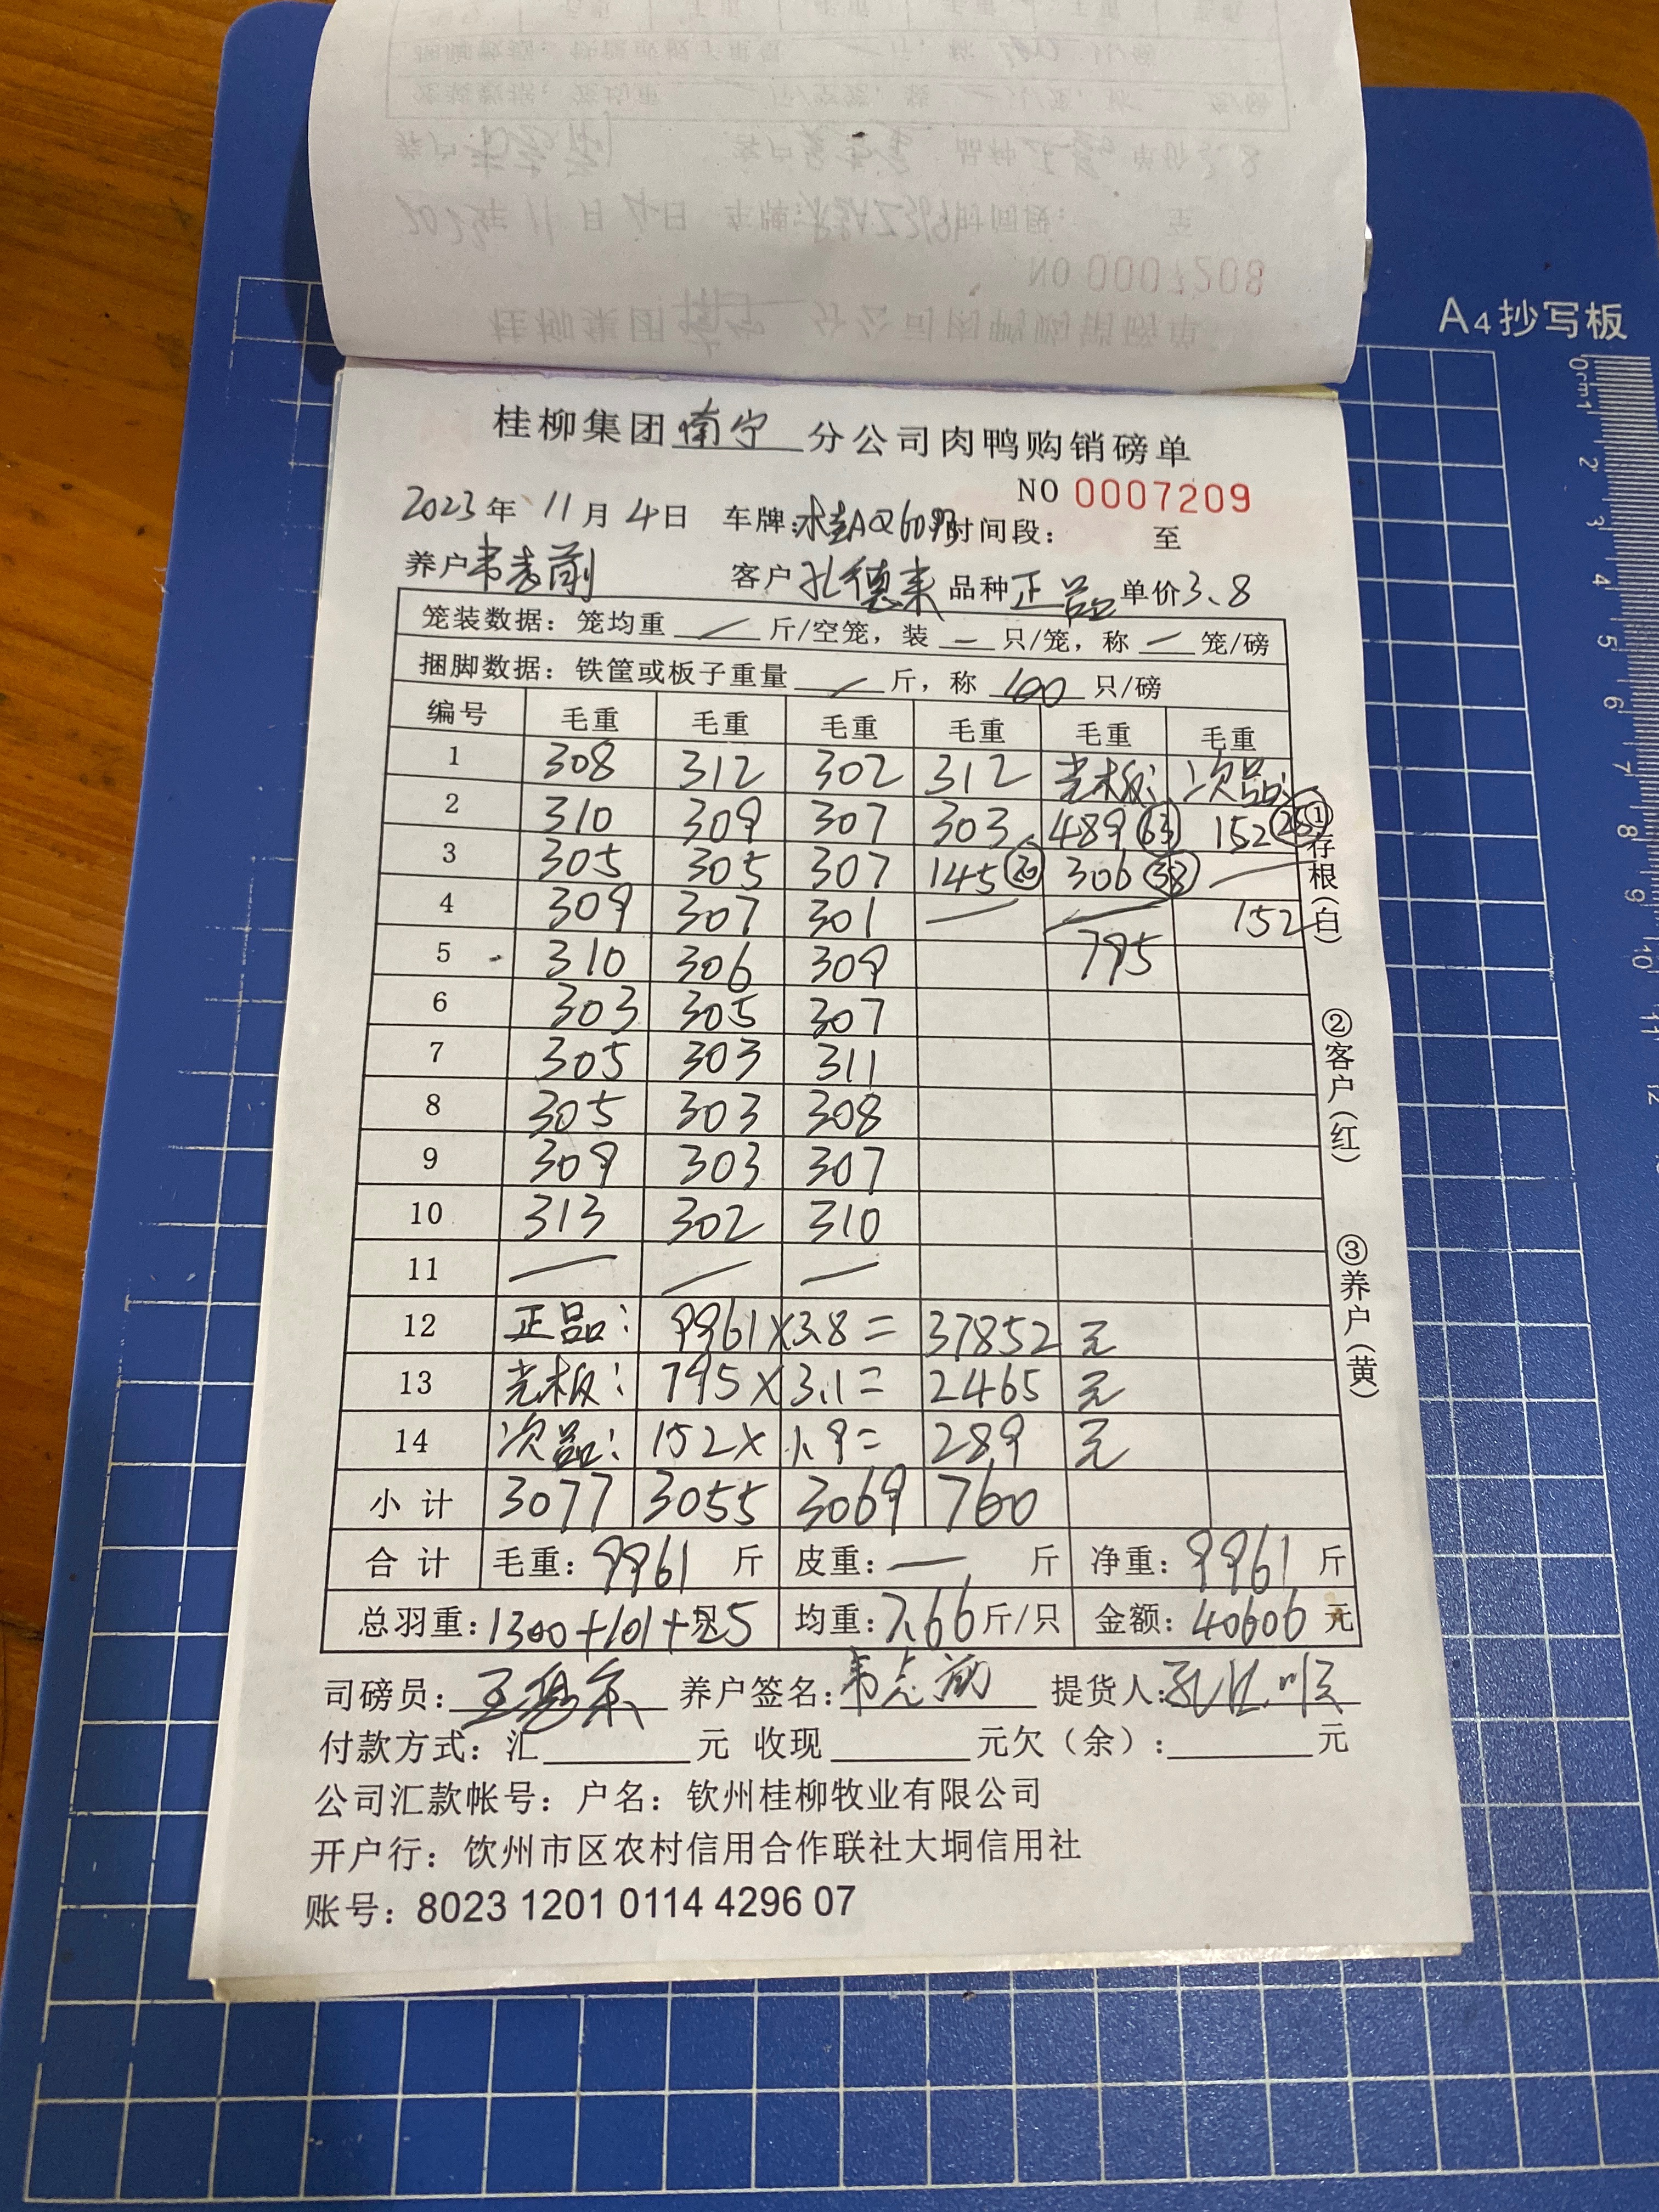 A4抄写板
桂柳集团南宁分公司肉鸭购销磅单
NO 0007209
2023年 11月 4日 车牌:桂AQ6093 时间段: 至
养户 客户 孔德来 品种 正品 单价 3.8
笼装数据：笼均重 — 斤/空笼，装 — 只/笼，称 — 笼/磅
捆脚数据：铁筐或板子重量 — 斤，称 40 只/磅
编号 毛重 毛重 毛重 毛重 毛重 毛重
1 308 312 302 312 光板: 次品:
2 310 309 307 303 489 (63) 152 (25)
3 305 305 307 145 (20) 306 (38) —
4 309 307 301 — — 152
5 310 306 309 795
6 303 305 307
7 305 303 311
8 305 303 308
9 309 303 307
10 313 302 310
11 — — —
12 正品: 9961×3.8= 37852 元
13 光板: 795×3.1= 2465 元
14 次品: 152×1.9= 289 元
小计 3077 3055 3069 760
合计 毛重: 9961 斤 皮重: — 斤 净重: 9961 斤
总羽重: 1300+101+25 均重: 7.66 斤/只 金额: 40606 元
司磅员: 养户签名: 提货人:
付款方式: 汇 元 收现 元欠（余）: 元
公司汇款帐号：户名：钦州桂柳牧业有限公司
开户行：饮州市区农村信用合作联社大垌信用社
账号：8023 1201 0114 4296 07
①存根(白)
②客户(红)
③养户(黄)
0cm1 2 3 4 5 6 7 8 9 10 11 12